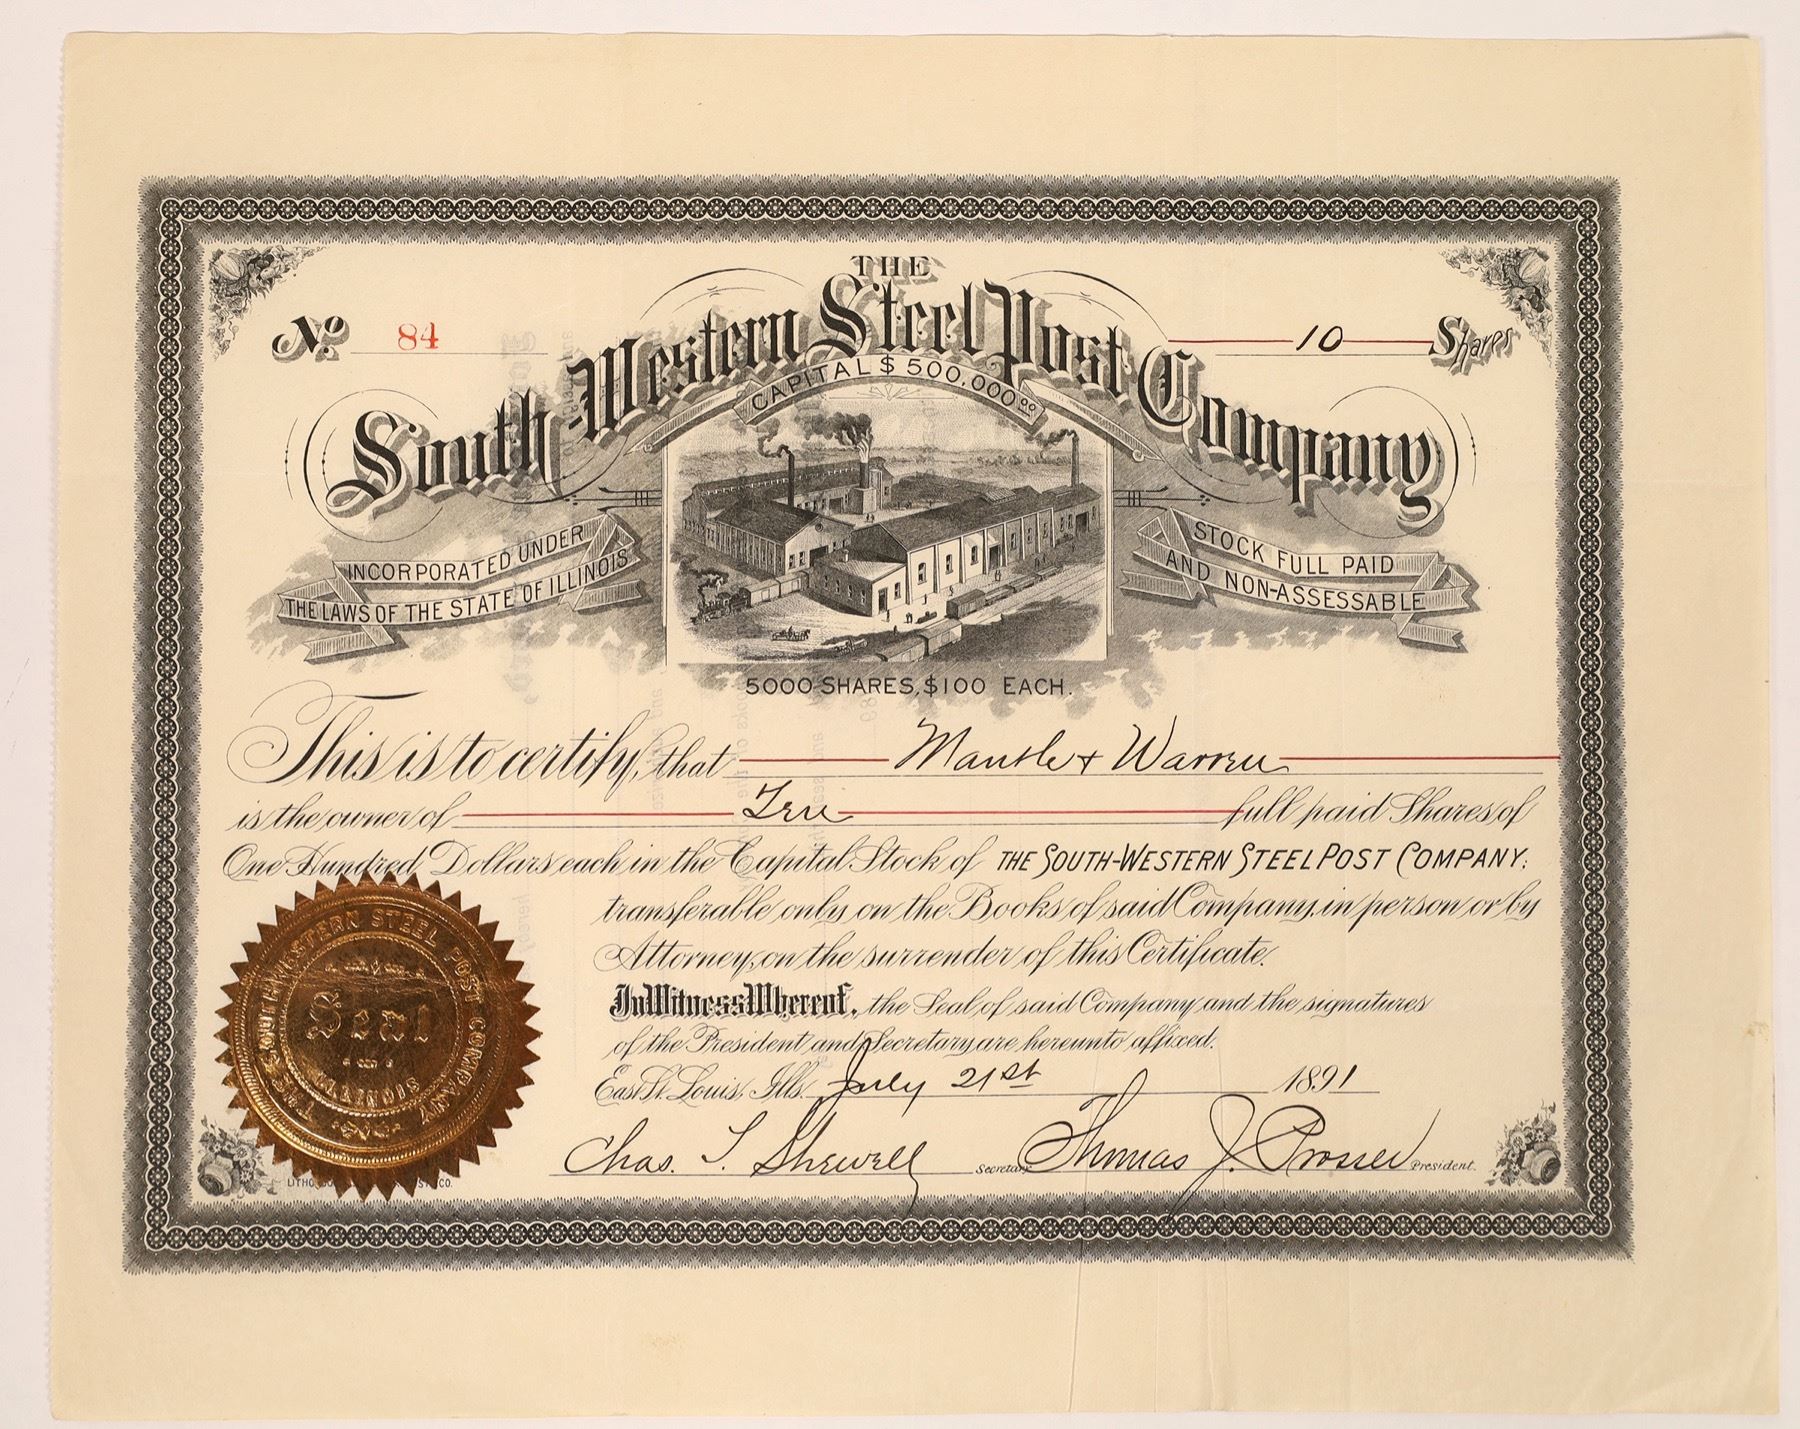 No. 84
10 Shares
THE
South-Western Steel Post Company
CAPITAL $500,000.00
INCORPORATED UNDER
THE LAWS OF THE STATE OF ILLINOIS
STOCK FULL PAID
AND NON-ASSESSABLE
5000 SHARES, $100 EACH.
This is to certify, that Mantle & Warren
is the owner of Ten full paid Shares of
One Hundred Dollars each in the Capital Stock of THE SOUTH-WESTERN STEEL POST COMPANY;
transferable only on the Books of said Company, in person or by
Attorney, on the surrender of this Certificate.
In Witness Whereof, the Seal of said Company and the signatures
of the President and Secretary are hereunto affixed.
East St. Louis, Ills. July 21st 1891
Chas. T. Shewell Secretary Thomas J. Prosser President.
THE SOUTH WESTERN STEEL POST COMPANY
Seal
ILLINOIS
LITHO CO.